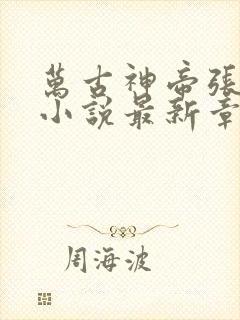 萬古神帝張
小說最新章
周海波